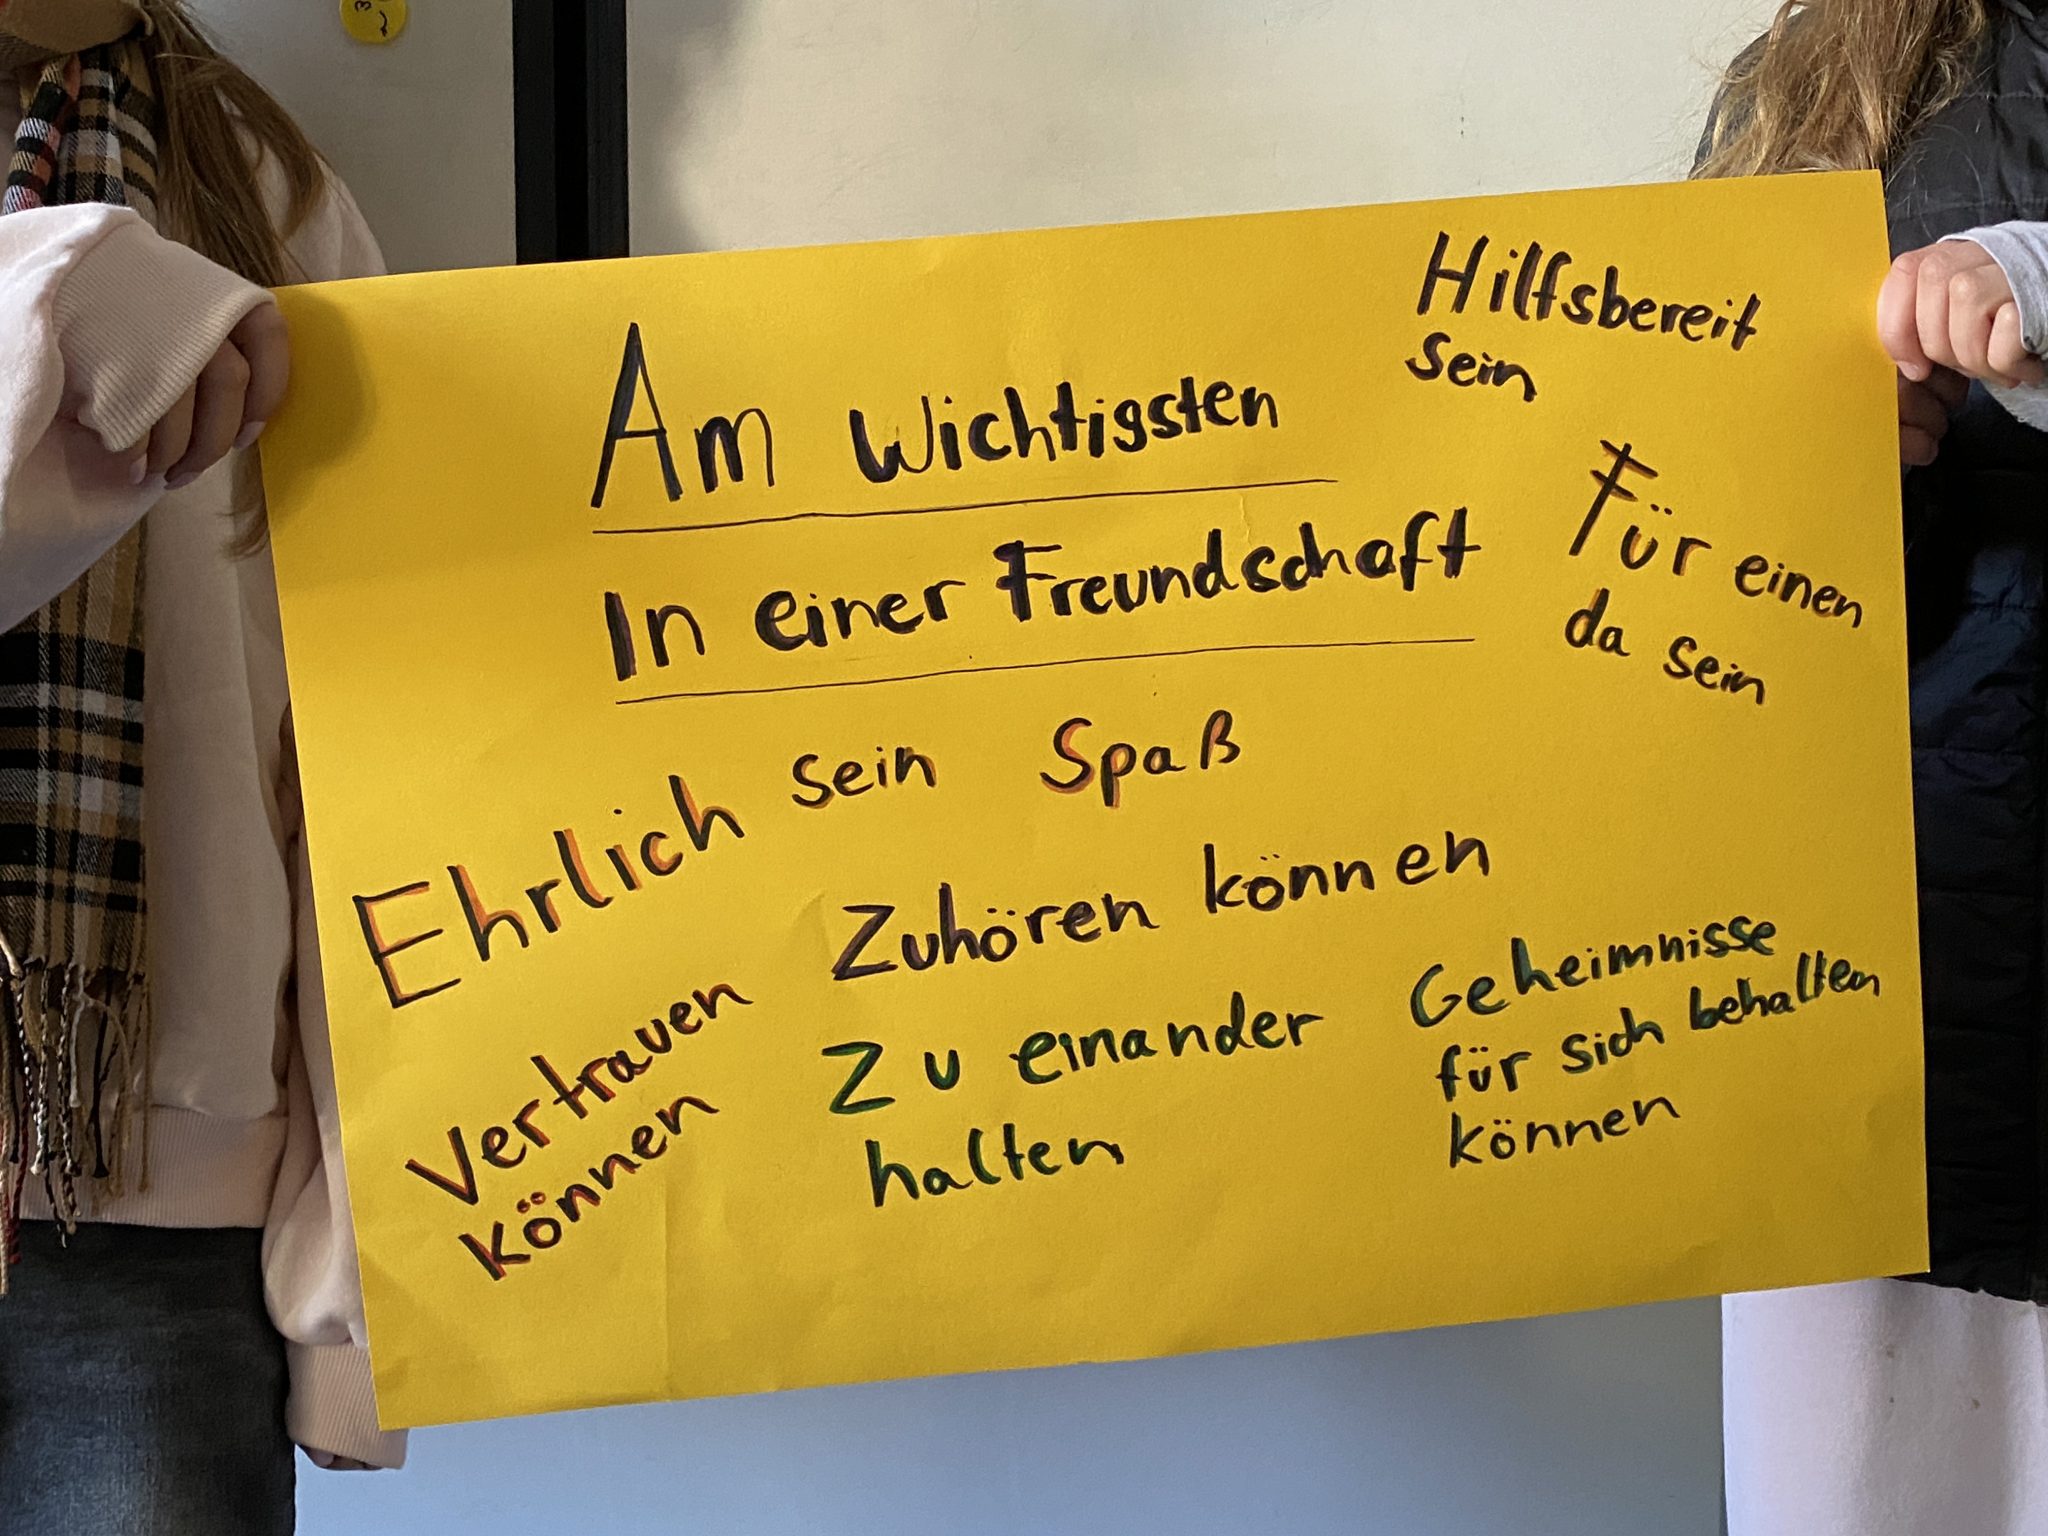 Am wichtigsten
In einer Freundschaft
Hilfsbereit
sein
Für einen
da sein
Ehrlich sein
Spaß
Zuhören können
Vertrauen
können
Zu einander
halten
Geheimnisse
für sich behalten
können